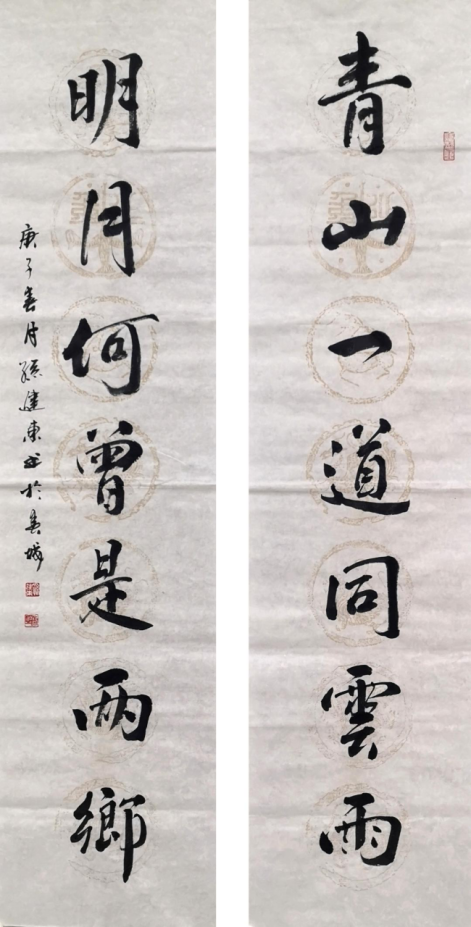 青山一道同雲雨
明月何曾是兩鄉
庚子春月孫健東书於春城